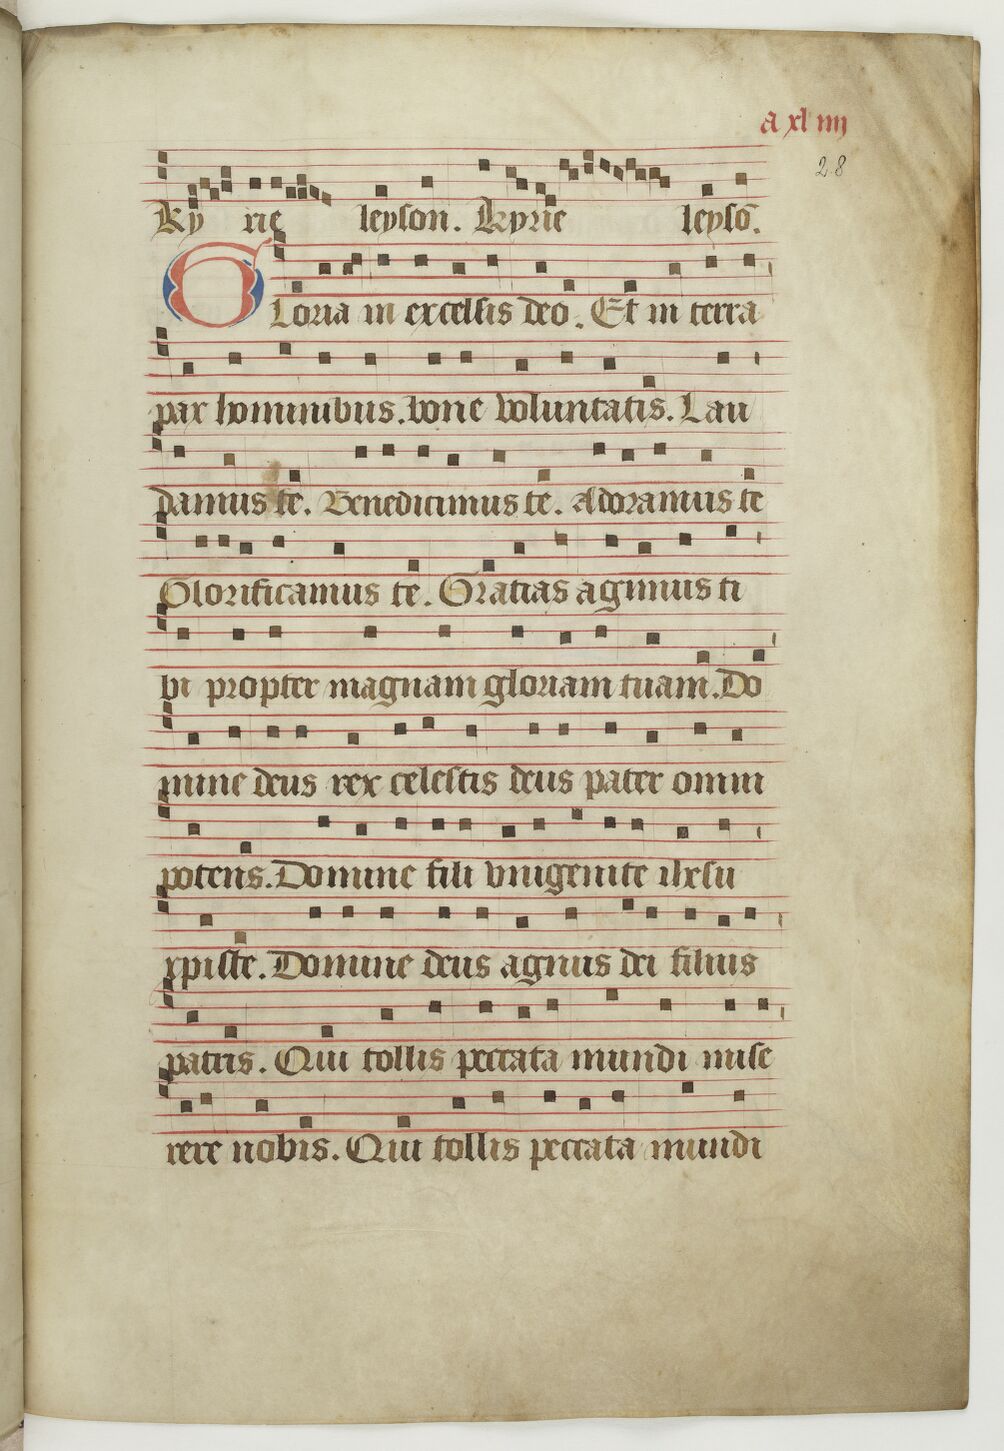 a xl iiij
28
Ky rie leyson. Kyrie leysō.
Gloria in excelsis deo. Et in terra
pax hominibus. bone voluntatis. Lau
damus te. Benedicimus te. Adoramus te
Glorificamus te. Gratias agimus ti
bi propter magnam gloriam tuam. Do
mine deus rex celestis deus pater omni
potens. Domine fili vnigenite ihesu
xpiste. Domine deus agnus dei filius
patris. Qui tollis peccata mundi mise
rere nobis. Qui tollis peccata mundi